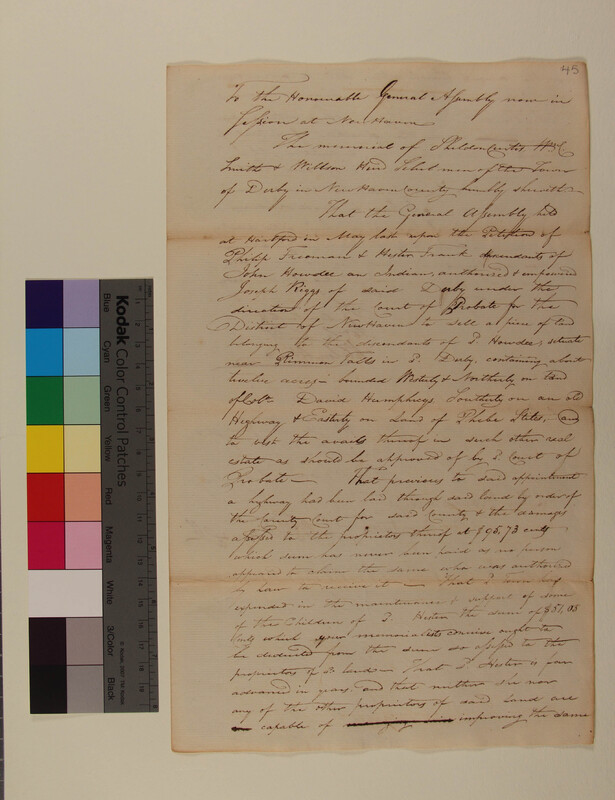 45
To the Honourable General Assembly now in
Session at New Haven
The memorial of Sheldon Curtis
Smith & Willson Hurd Select men of the Town
of Derby in New Haven County humbly sheweth
That the General Assembly held
at Hartford in May last upon the Petition of
Philip Freeman & Hester Frank descendants of
John Howdee an Indian, authorised & impowered
Joseph Riggs of said Derby under the
direction of the Court of Probate for the
District of New Haven to sell a piece of land
belonging to the descendants of S Howdee, situate
near Rimmon Falls in S Derby, containing about
twelve acres bounded Westerly & Northerly on land
of Colo David Humphreys Southerly on an old
Highway & Easterly on Land of Phebe Stiles, and
to vest the avails thereof in such other real
estate as should be approved of by S Court of
Probate — That previous to said appointment
a highway had been laid through said land by order of
the County Court for said County & the damages
assessed to the proprietors thereof at $95,73 cents
which sum has never been paid as no person
appeared to claim the same who was authorised
by law to receive it — That S Town has
expended in the maintenance & support of some
of the Children of S Hester the sum of $51,08
Cents which your memorialists conceive ought to
be deducted from the sum so assessed to the
proprietors of S land — That S Hester is far
advanced in years, and that neither she nor
any of the other proprietors of said Land are
capable of improving the same
Kodak Color Control Patches
Blue
Cyan
Green
Yellow
Red
Magenta
White
3/Color
Black